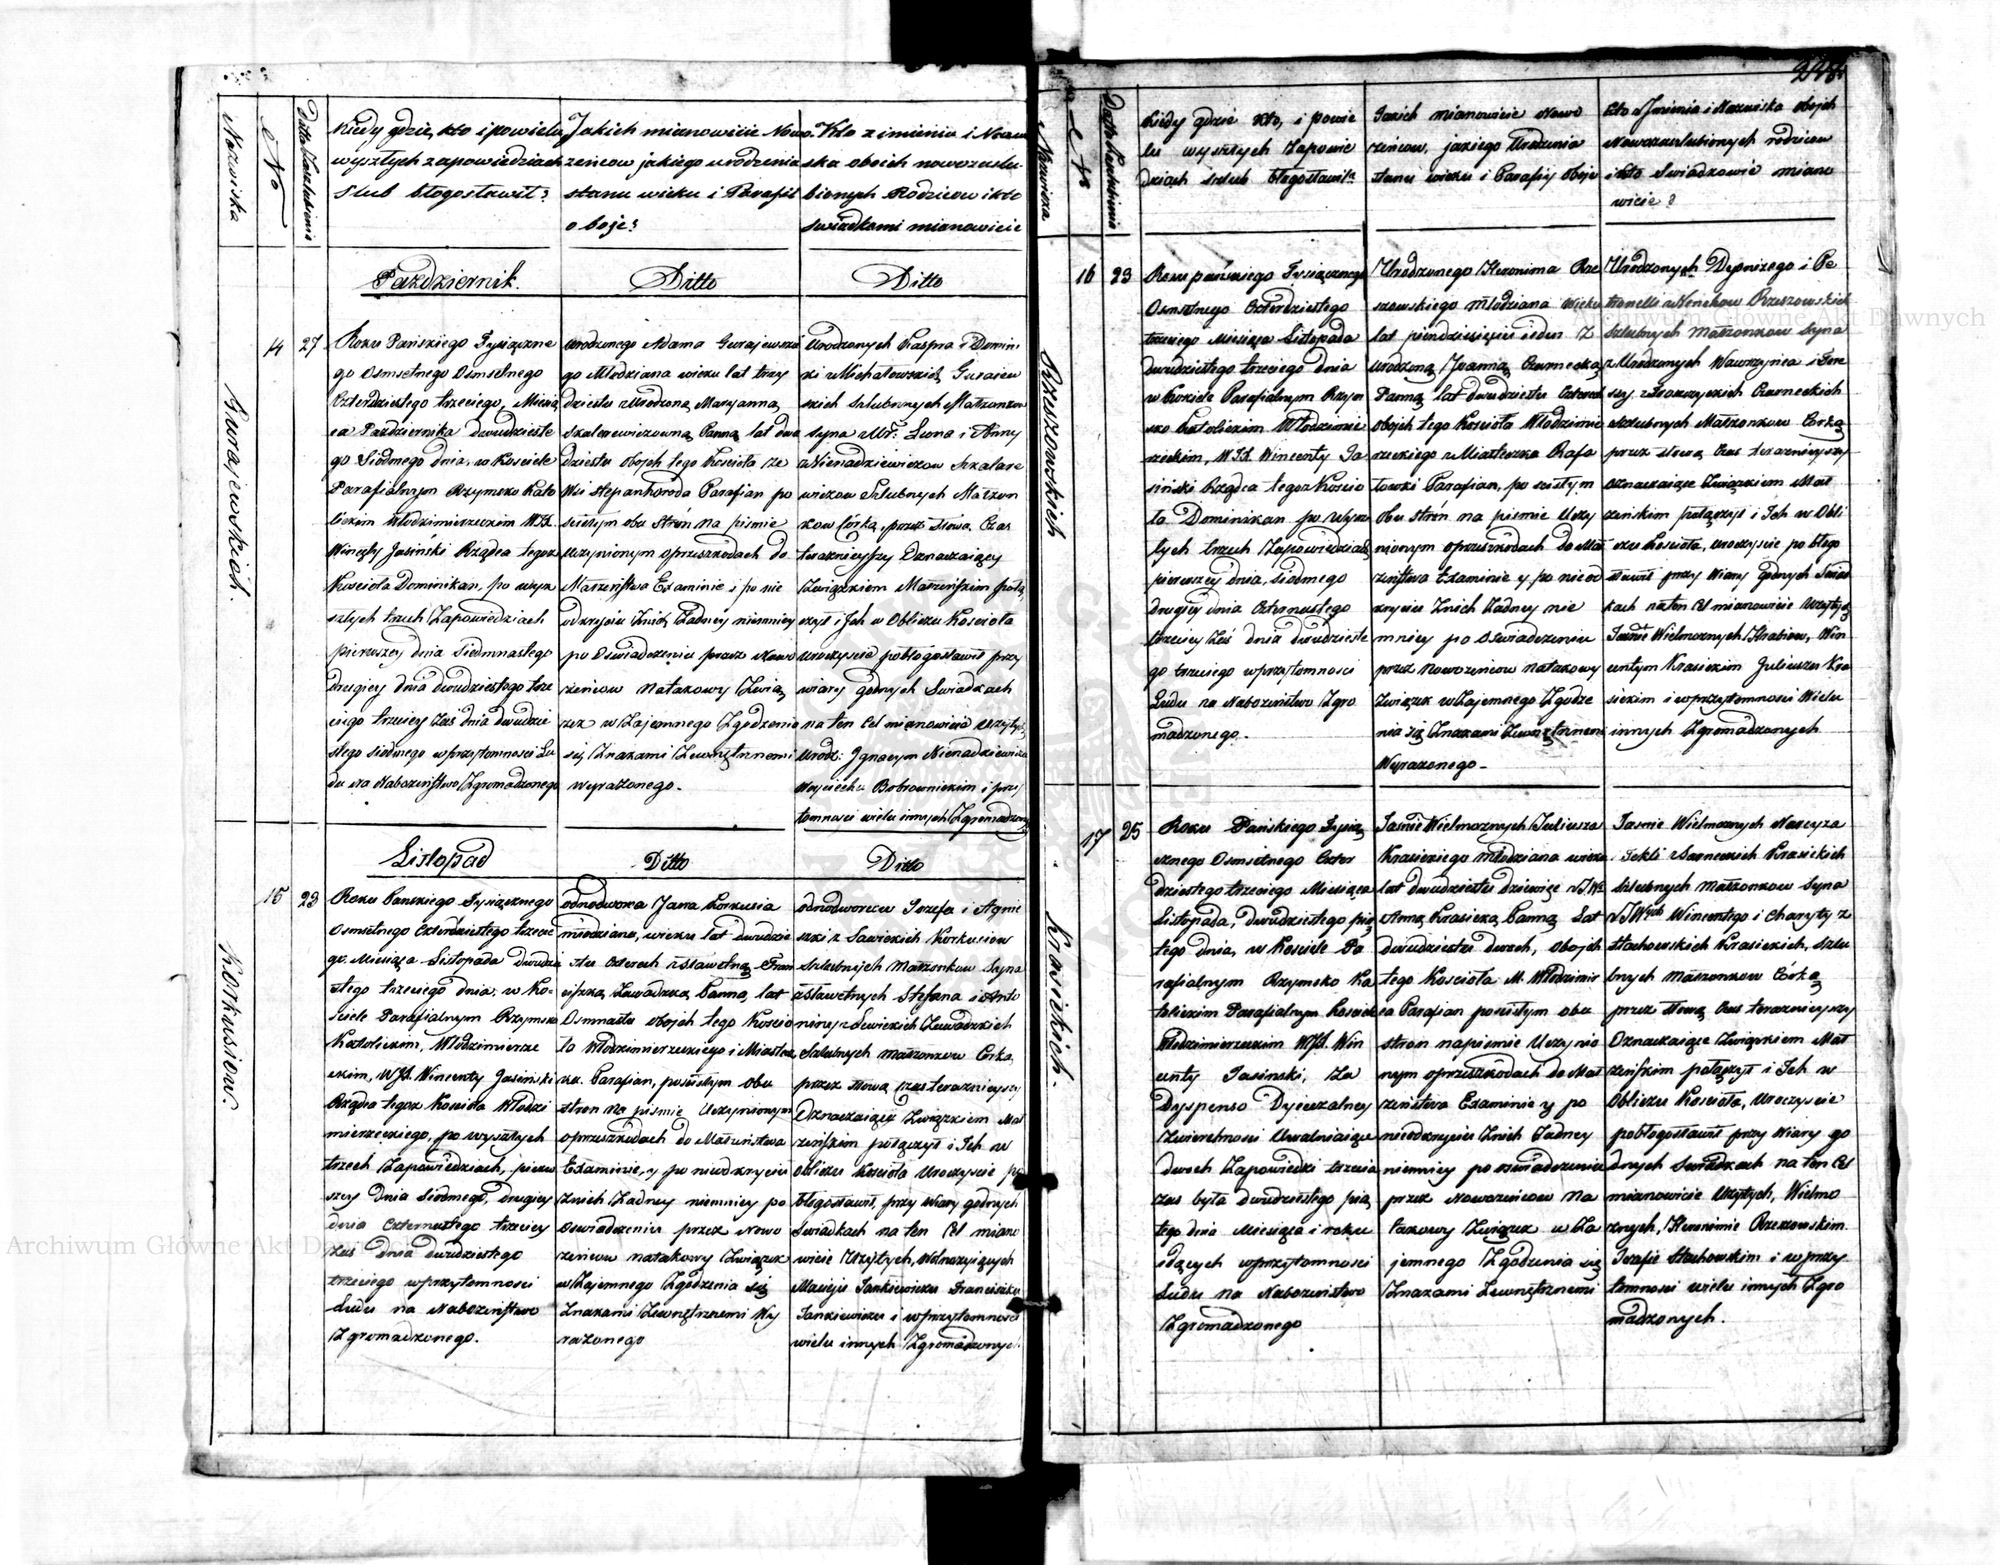 Nazwiska
No
Datta Zaślubienia
Kiedy gdzie, kto i po wielu
wyszłych zapowiedziach
Slub błogosławił?
Jakich mianowicie Nowo
zeńcow jakiego urodzenia
stanu wieku i Parafii
oboje?
Kto z imienia i Nazwi
ska oboich nowozaslu
bionych Rodzicow i kto
swiadkami mianowicie
Pazdziernik.
Ditto
Ditto
Gurajewskich.
14
27
Roku Pańskiego Tysiączne
go Osmsetnego Osmsetnego
Czterdziestego trzeciego, Miesią
ca Pazdziernika dwudzieste
go Siodmego dnia, w Kosciele
Parafialnym Rzymsko Kato
lickim Włodzimierzeckim WJX.
Wincęty Jasiński Rządca tegoż
Kościoła Dominikan, po wysz
szłych trzech Zapowiedziach
pierwszey dnia Siedmnastego
drugiey dnia dwudziestego trze
ciego trzeciey Zaś dnia dwudzie
stego siodmego w przytomnosci Lu
du na Nabozeństwo Zgromadzonego
Urodzonego Adama Gurajewskie
go Młodziana wieku lat trzy
dziestu z Urodzoną Maryanną
Szkalerewiczowną Panną lat dwa
dziestu obojch tego Kościoła ze
Wsi Stepanhoroda Parafian po
ścisłym obu Strón na pismie
uczynionym o przeszkodach do
Małżeństwa Examinie i po nie
odkryciu Znich Żadney niemniey
po Oswiadczeniu przez Nowo
zeńcow na takowy Zwią
zek w Zajemnego Zgodzenia
się Znakami Zewnętrznemi
wyrażonego.
Urodzonych Kaspra i Domin
ki z Michałowskich Guraiew
skich Szlubnych Małżonkow
syna z Ur: Leona i Anny
z Nienadziewiczow Szkalare
wiczow Szlubnych Małżon
kow Córką, przez Słowa, Czas
teraznieyszy Oznaczaiący
Związkiem Małżeńskim połą
czył i Jch w Obliczu Kościoła
uroczyście pobłogosławił przy
wiary godnych Swiadkach
na ten Cel mianowicie użytych
Urodz: Jgnacym Nienadziewiczu
Woyciechu Bobrownickim i przy
tomnosci wielu innych Zgromadzony
Listopad
Ditto
Ditto
Korkusiow.
15
23
Roku Pańskiego Tysiącznego
Osmsetnego Czterdziestego trzecie
go, Miesiąca Listopada dwudzie
stego trzeciego dnia, w Ko
sciele Parafialnym Rzymsko
Katolickim, Włodzimierze
ckim, WJX. Wincenty Jasiński
Rządca tegoż Kościoła Włodzi
mierzeckiego, po wyszłych
trzech Zapowiedziach, pierw
szey dnia Siodmego, drugiey
dnia czternastego trzeciey
Zaś dnia dwudziestego
trzeciego w przytomnosci
Ludu na Nabozeństwo
Zgromadzonego.
Odnodworca Jana Korkusia
młodziana, wieku lat dwudzie
stu czterech z Sławetną Fran
ciszką Zawadzką Panną, lat
Osmnastu obojch tego Kościo
ła Włodzimierzeckiego i Miastecz
ka. Parafian, po ścisłym obu
stron na piśmie Uczynionym
o przeszkodach do Małżeństwa
Examinie, y po nieodkryciu
Znich Żadney niemniey po
Oswiadczeniu przez Nowo
zeńcow na takowy Związek
w Zajemnego Zgodzenia się
Znakami Zewnętrznemi Wy
rażonego
Odnodworcow Jozefa i Agnie
szki z Sawickich Korkusiow
Szlubnych małżonkow Syna
z Sławetnych Stefana i Anto
niny z Sewickich Zawadzkich
Szlubnych małżonkow Corką
przez słowa, czas teraznieyszy
Oznaczaiące Związkiem Mał
żeńskim połączył i Jch w
obliczu Kościoła Uroczyście po
błogosławił, przy Wiary godnych
Swiadkach na ten Cel miano
wicie Użytych, Wolnożyiących
Macieju Jankiewiczu Franciszku
Jankiewiczu i w przytomnosci
wielu innych Zgromadzonych
Nazwiska
No
Datta Zaslubienia
Kiedy gdzie kto, i po wie
lu wyszłych Zapowie
dziach Szlub błogosławił?
Jakich mianowicie Nowo
żeńcow, jakiego Urodzenia
stanu wieku i Parafiy oboje
Kto z Jmienia i Nazwiska obojch
Nowozaslubionych rodzicow
i kto Swiadkowie miano
wicie?
Rzeszowskich
16
23
Roku pańskiego Tysiącznego
Osmsetnego Czterdziestego
trzeciego Miesiąca Listopada
dwudziestego trzeciego dnia
w Kosciele Parafialnym Rzym
sko Katolickim Włodzimie
rzeckim, WJX. Wincenty Ja
siński Rządca tegoż Kościo
ła Dominikan po Wysz
łych trzech Zapowiedziach
pierwszey dnia, siodmego
drugiey dnia Czternastego
trzeciey Zaś dnia dwudzieste
go trzeciego w przytomnosci
Ludu na Nabożeństwo Zgro
madzonego.
Urodzonego Hieronima Rze
szowskiego młodziana Wieku
lat piendziesięciu ieden Z
Urodzoną Joanną Czarnecką
Panną lat dwudziestu Czterech
obojch tego Kościoła Włodzimie
rzeckiego z Miasteczka Rafa
łowki Parafian, po scisłym
obu strón na piśmie Uczy
nionym o przeszkodach do Mał
żeństwa Examinie y po nieod
kryciu Znich Żadney nie
mniey po Oswiadczeniu
przez Nowożeńcow na takowy
Związek w Zajemnego Zgodze
nia się Znakami Zewnętrznemi
Wyrażonego.
Urodzonych Dyonizego i Pe
tronelli Rzeszowskich
Szlubnych małżonkow Syna
z Urodzonych Wawrzynca i Tere
sy Czarneckich
Szlubnych Małżonkow Corką
przez słowa, Czas teraznieyszy
oznaczaiące Związkiem Mał
żeńskim połączył i Jch w Obli
czu Kościoła, uroczyście pobłogo
sławił przy Wiary godnych Swiad
kach na ten Cel mianowicie Użytych
Jasnie Wielmożnych Hrabiow, Win
centym Krasickim Juliuszu Kra
sickim i w przytomnosci Wielu
innych Zgromadzonych
Krasickich.
17
25
Roku Pańskiego Tysią
cznego Osmsetnego Czter
dziestego trzeciego Miesiąca
Listopada, dwudziestego pią
tego dnia, w Kosciele Pa
rafialnym Rzymsko Ka
tolickim Parafialnym Kosciele
Włodzimierzeckim WJX. Win
centy Jasinski, Za
Dyspensą Dyecezalney
Zwierzchnosci Uwalniaiące
dwoch Zapowiedzi trzecia
zas była dwudziestego pią
tego dnia Miesiąca i roku
idących w przytomnosci
Ludu na Nabożeństwo
Zgromadzonego
Jasnie Wielmożnych Juliusza
Krasickiego młodziana wieku
lat dwudziestu dziewięć z JW.
Anną Krasicką Panną Lat
dwudziestu dwoch, obojch
tego Kościoła M. Włodzimir
ca Parafian po scisłym obu
stron na pismie Uczynio
nym o przeszkodach do Mał
żeństwa Examinie y po
nieodkryciu Znich Żadney
niemniey po oswiadczeniu
przez Nowożeńcow na
takowy Związek w Za
jemnego Zgodzenia się
Znakami Zewnętrznemi
Jasnie Wielmożnych Narcyza
Tekli Krasickich
Szlubnych małżonkow Syna
z JWych Wincentego i Charyty z
Stachowskich Krasickich, szlu
bnych małżonkow Córką
przez słowa, Czas teraznieyszy
Oznaczaiące Związkiem Mał
żeńskim połączył i Jch w
Obliczu Kościoła, Uroczyscie
pobłogosławił przy Wiary go
dnych Swiadkach na ten Cel
mianowicie Użytych, Wielmo
żnych, Hieronimie Rzeszowskim
Jozefie Stachowskim i w przy
tomnosci wielu innych Zgro
madzonych.
Archiwum Główne Akt Dawnych
Archiwum Główne Akt Dawnych